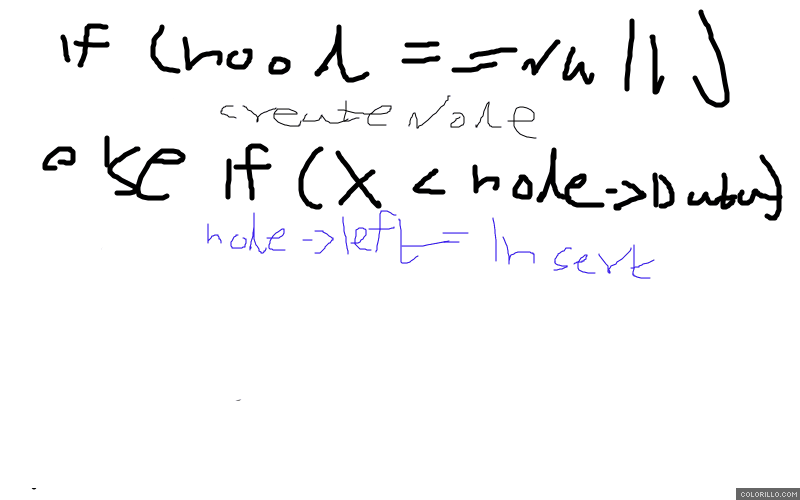 if (nood == =null)
create Node
else if (x < node->Data)
node->left = Insert
COLORILLO.COM